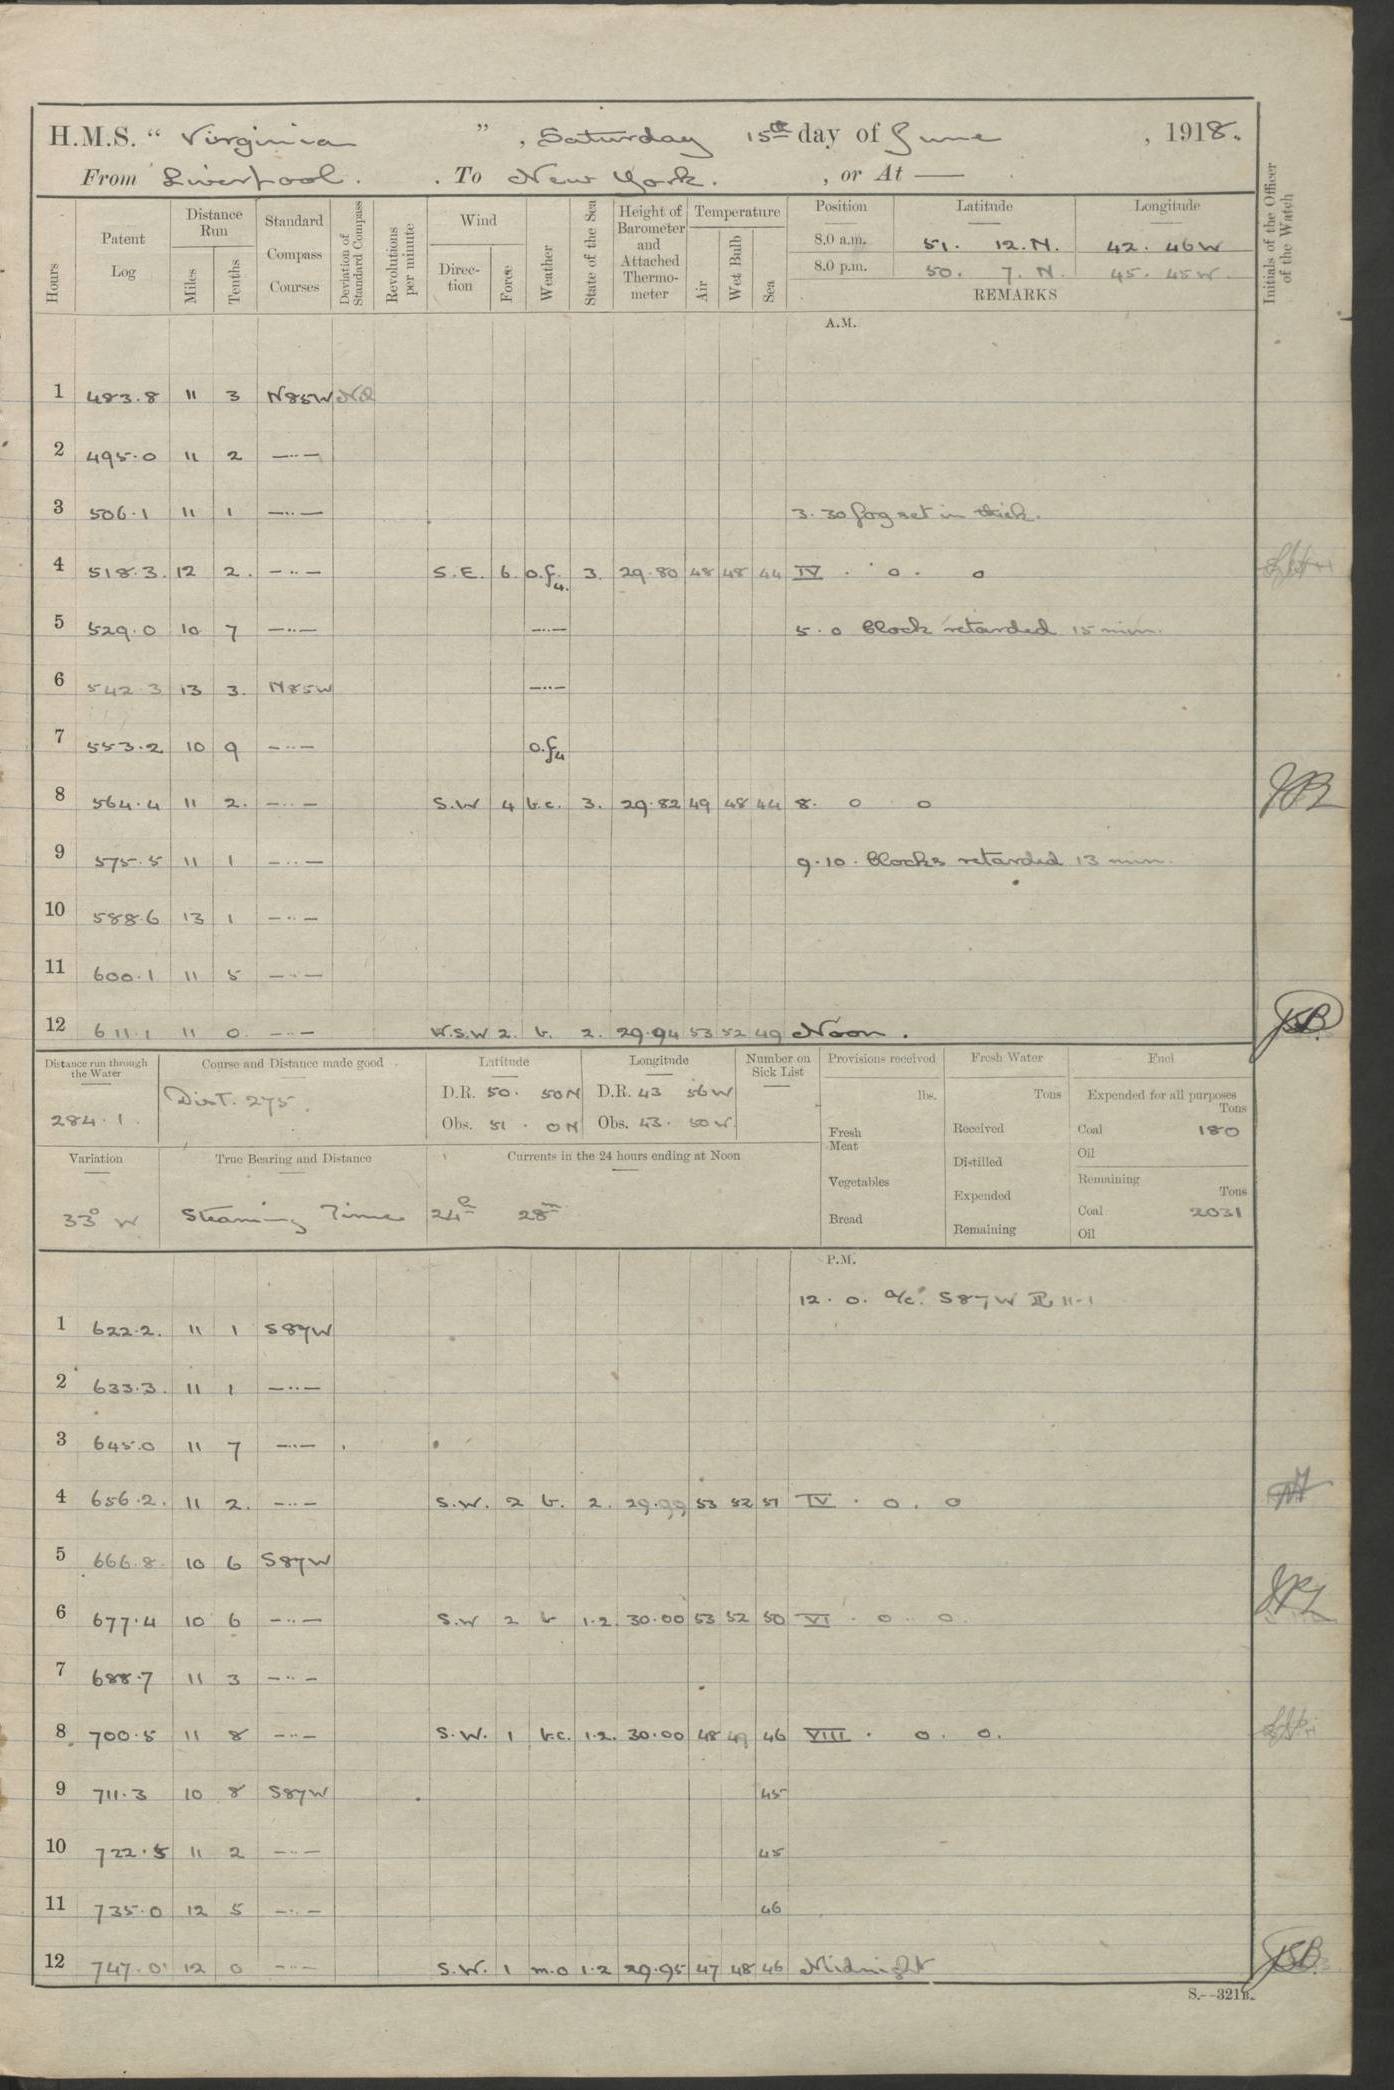 H.M.S. “ Virginia ”, Saturday 15th day of June , 1918.
From Liverpool. . To New York. , or At —
Hours
Patent Log
Distance Run
Miles
Tenths
Standard Compass Courses
Deviation of Standard Compass
Revolutions per minute
Wind
Direction
Force
Weather
State of the Sea
Height of Barometer and Attached Thermometer
Temperature
Air
Wet Bulb
Sea
Position Latitude Longitude
8.0 a.m. 51. 12. N. 42. 46 W
8.0 p.m. 50. 7. N. 45. 45 W.
REMARKS
Initials of the Officer of the Watch
A.M.
1 483.8 11 3 N85W
2 495.0 11 2 —··—
3 506.1 11 1 —··— 3.30 fog set in thick.
4 518.3. 12 2. —··— S.E. 6. o.f.4. 3. 29.80 48 48 44 IV . o. o
5 529.0 10 7 —··— —··— 5.0 Clock retarded 15 min.
6 542.3 13 3. N85W —··—
7 553.2 10 9 —··— o.f4
8 564.4 11 2. —··— S.W 4 b.c. 3. 29.82 49 48 44 8. o o
9 575.5 11 1 —··— 9.10. Clocks retarded 13 min.
10 588.6 13 1 —··—
11 600.1 11 5 —··—
12 611.1 11 0. —··— W.S.W 2. b. 2. 29.94 53 52 49 Noon.
JSB
Distance run through the Water
284.1
Course and Distance made good
Dist. 275.
Latitude
D.R. 50. 50N
Obs. 51. 0N
Longitude
D.R. 43 56W
Obs. 43. 50W
Number on Sick List
Provisions received
lbs.
Fresh Meat
Vegetables
Bread
Fresh Water
Tons
Received
Distilled
Expended
Remaining
Fuel
Expended for all purposes
Tons
Coal 180
Oil
Remaining
Tons
Coal 2031
Oil
Variation
33° W
True Bearing and Distance
Steaming Time 24h 28m
Currents in the 24 hours ending at Noon
P.M.
12.0. a/c. S87W 11-1
1 622.2. 11 1 S87W
2 633.3. 11 1 —··—
3 645.0 11 7 —··—
4 656.2. 11 2. —··— S.W. 2 b. 2. 29.99 53 52 51 IV . o. o
5 666.8. 10 6 S87W
6 677.4 10 6 —··— S.W 2 b 1.2. 30.00 53 52 50 VI . o. o.
7 688.7 11 3 —··—
8 700.5 11 8 —··— S.W. 1 b.c. 1.2. 30.00 48 49 46 VIII . o. o.
9 711.3 10 8 S87W 45
10 722.5 11 2 —··— 45
11 735.0 12 5 —··— 46
12 747.0 12 0 —··— S.W. 1 m.o 1.2 29.95 47 48 46 Midnight
JSB.
S.--321B.